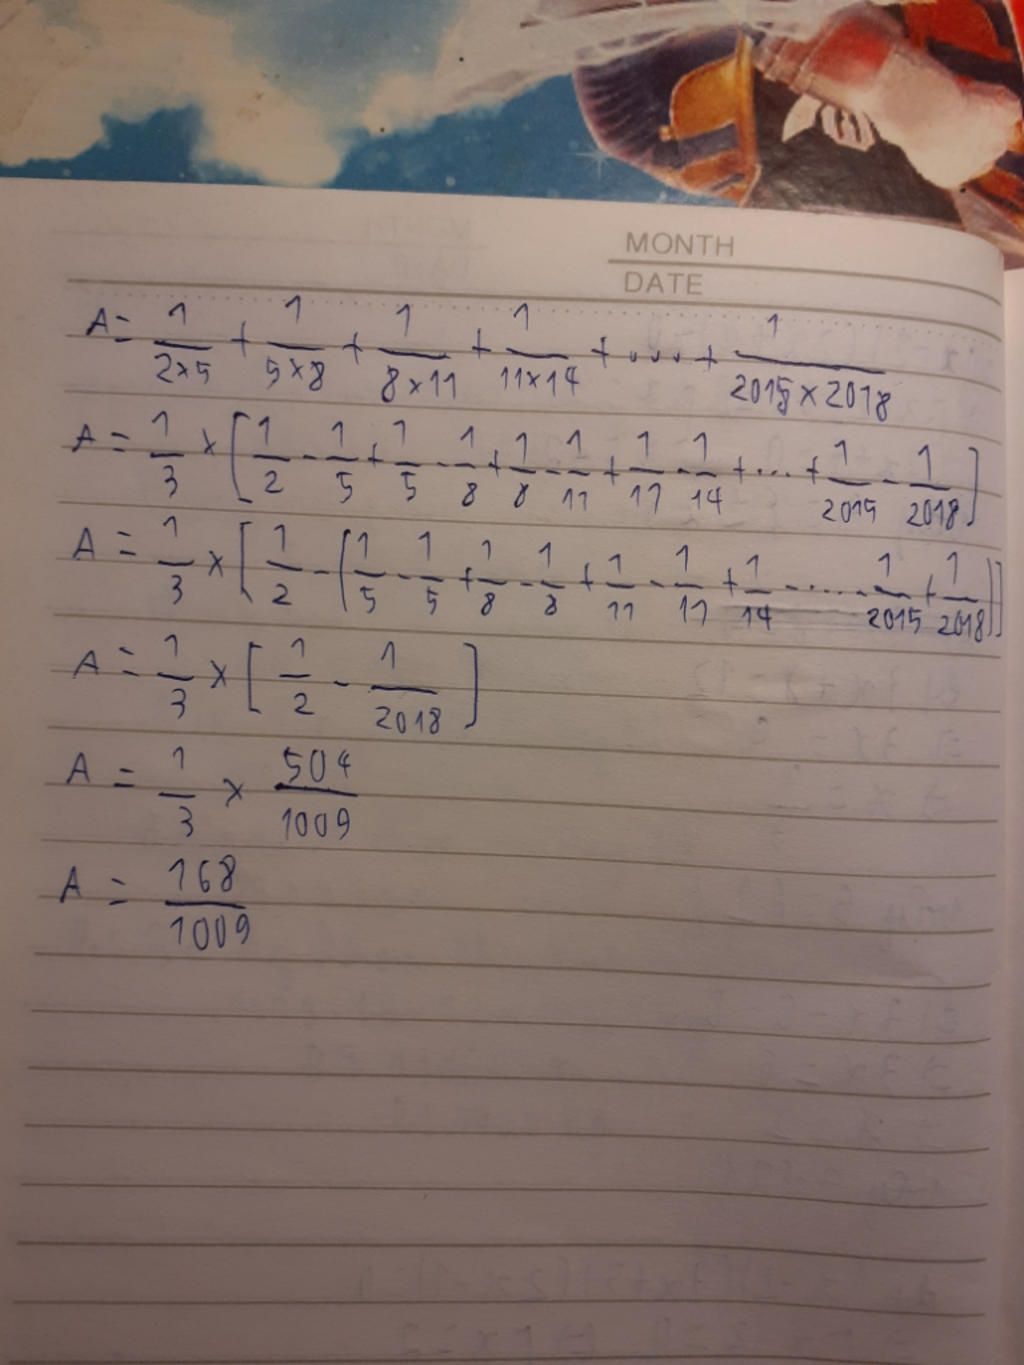 MONTH
DATE
A = 1/(2×5) + 1/(5×8) + 1/(8×11) + 1/(11×14) + ... + 1/(2015×2018)
A = 1/3 × [1/2 - 1/5 + 1/5 - 1/8 + 1/8 - 1/11 + 1/11 - 1/14 + ... + 1/2015 - 1/2018]
A = 1/3 × [1/2 - (1/5 - 1/5 + 1/8 - 1/8 + 1/11 - 1/11 + 1/14 - .... - 1/2015 + 1/2018)]
A = 1/3 × [1/2 - 1/2018]
A = 1/3 × 504/1009
A = 168/1009